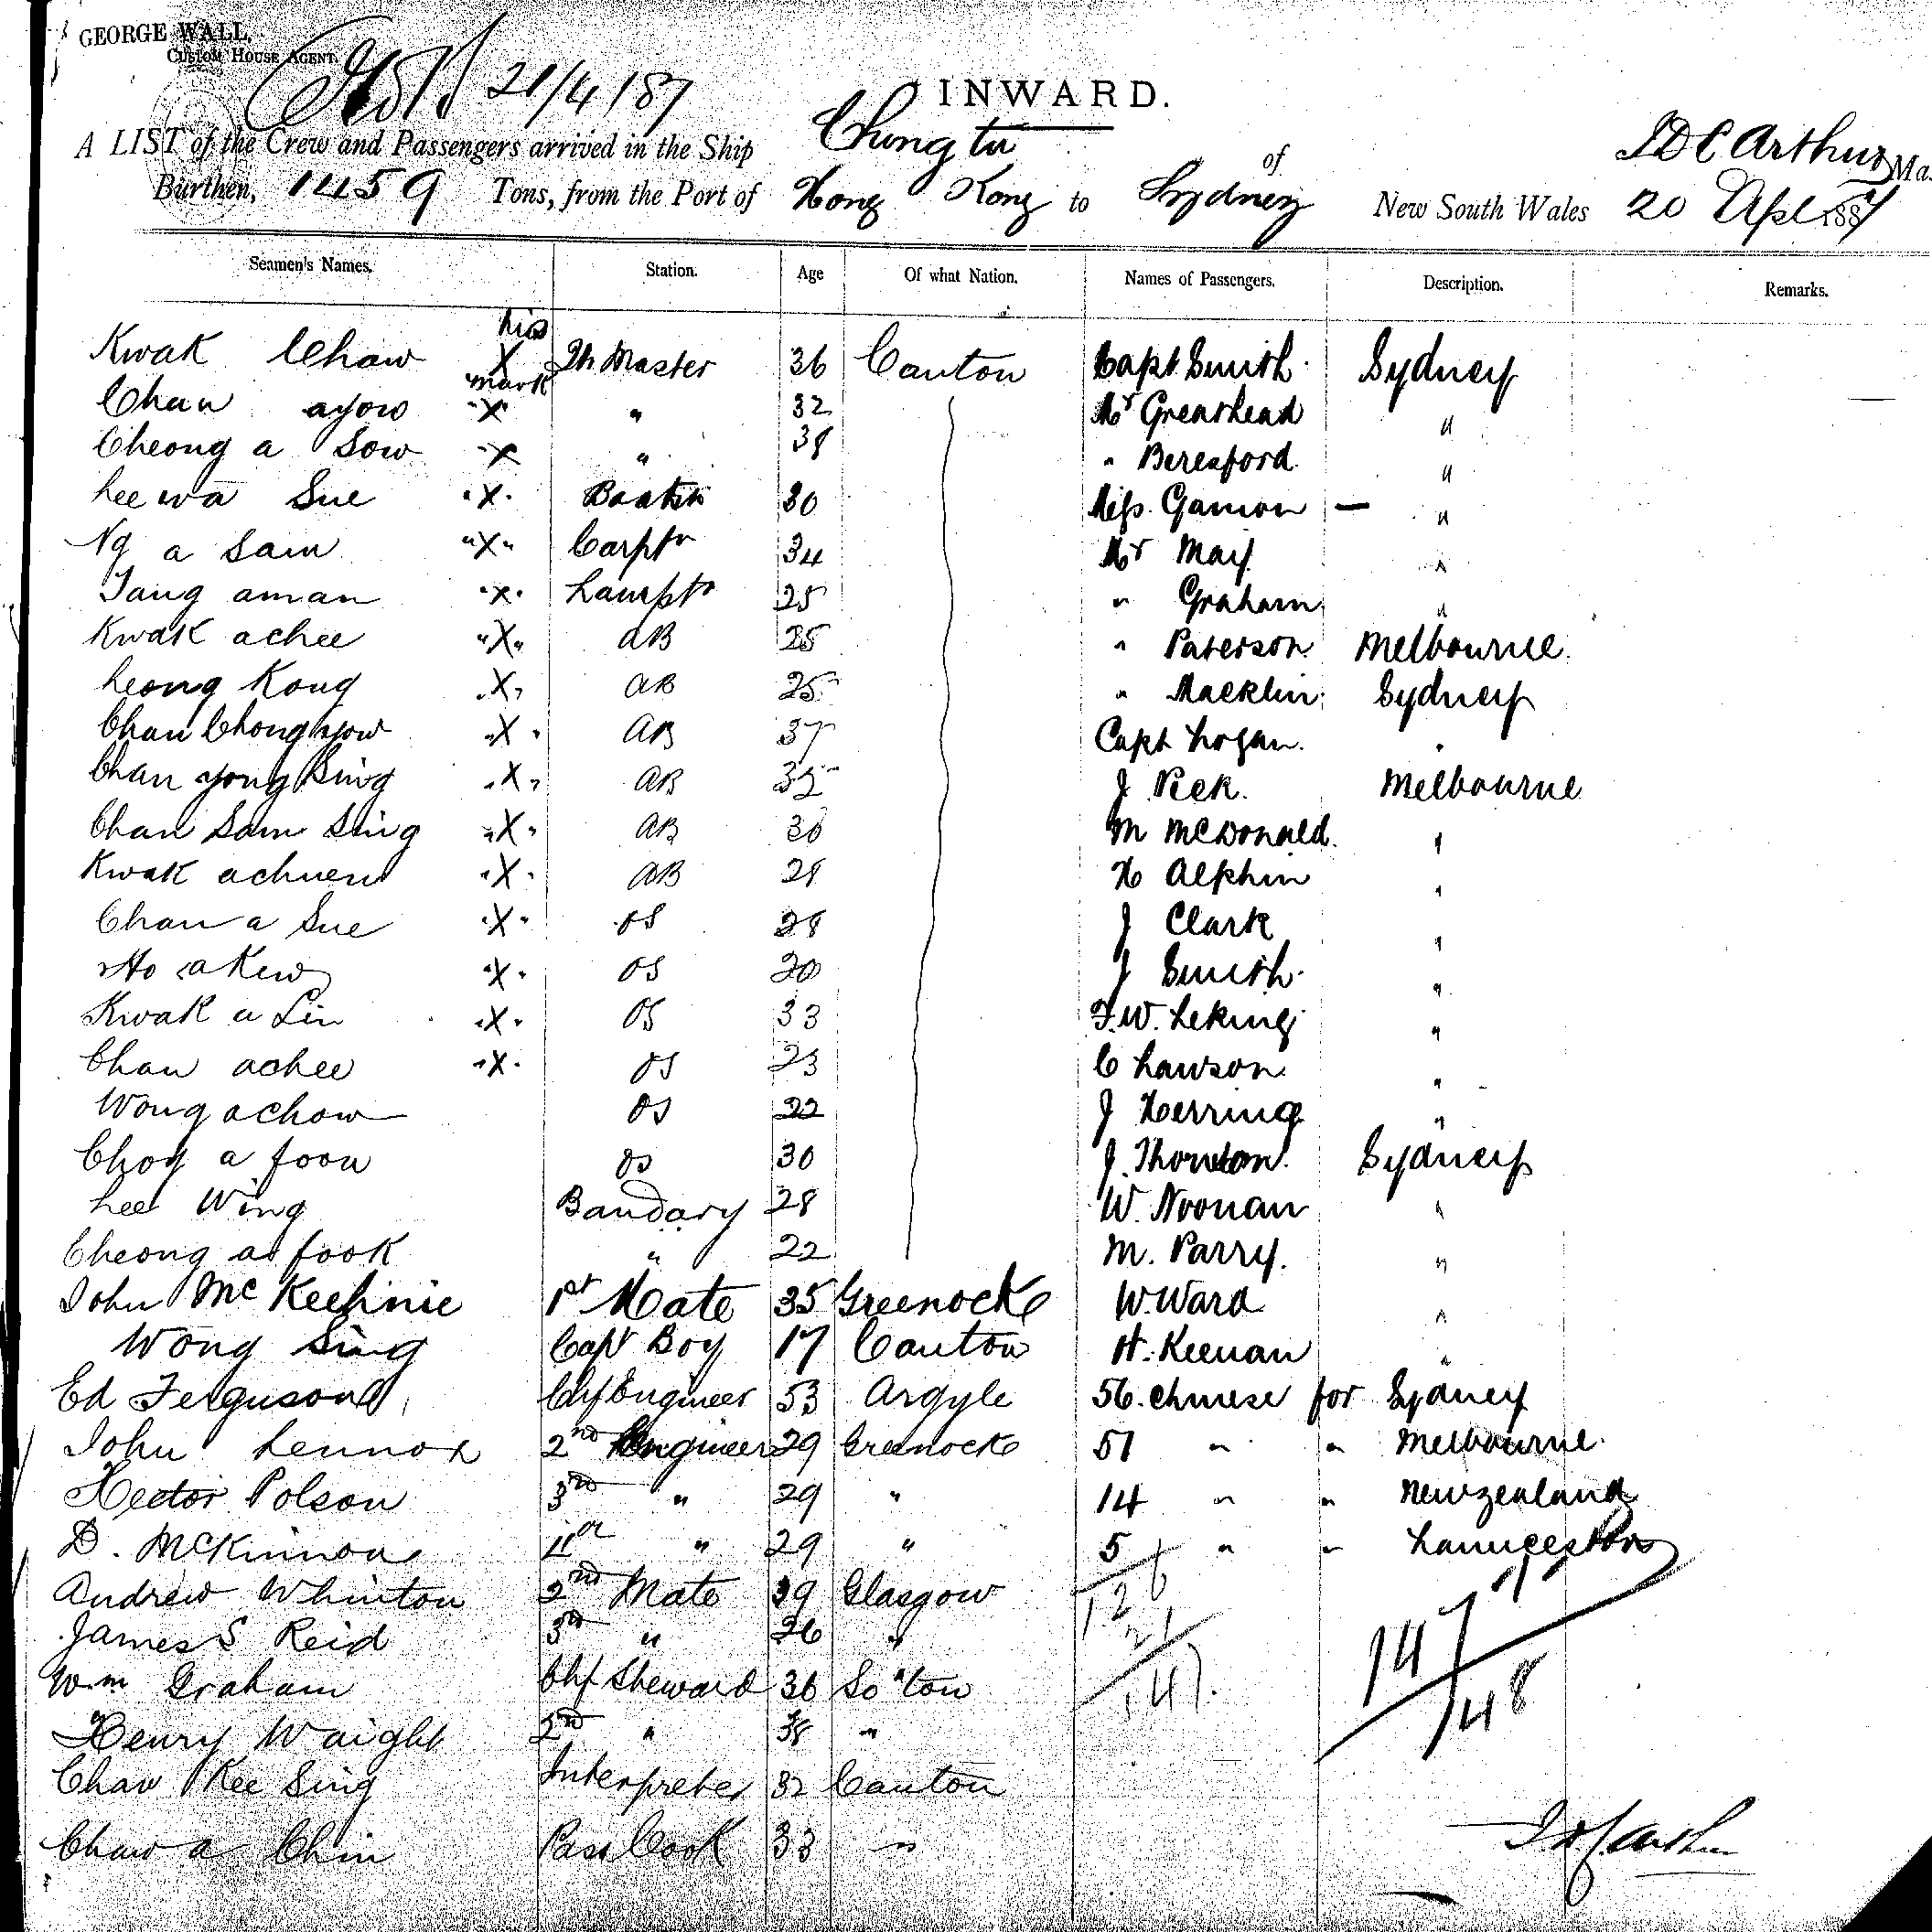 GEORGE WALL,
CUSTOM HOUSE AGENT.
21/4/87
INWARD.
A LIST of the Crew and Passengers arrived in the Ship Chungtu of J D C Arthur Ma
Burthen, 1459 Tons, from the Port of Hong Kong to Sydney New South Wales 20 Apl 1887
Seamen's Names. Station. Age Of what Nation. Names of Passengers. Description. Remarks.
Kwak Chaw his X mark Qr Master 36 Canton Capt Smith Sydney
Chan ayow "X" " 32 Mr Greathead "
Cheong a Sow "X " 38 " Beresford "
Lee wa Sue "X" Boatsn 30 Miss Gamon — "
Ng a Sam "X" Carptr 34 Mr May "
Tang aman "X" Lamptr 25 " Graham "
Kwak achee "X" AB 25 " Paterson Melbourne
Leong Kong "X" AB 25 " Macklin Sydney
Chan Chong yow "X" AB 37 Capt Logan "
Chan yong Sing "X" AB 35 J Peek Melbourne
Chan Sam Sing "X" AB 30 M McDonald "
Kwak achuen "X" AB 28 H Alphin "
Chan a Sue "X" OS 28 J Clark "
Ho aKew "X" OS 20 J Smith "
Kwak a Lin "X" OS 33 F.W. Leking "
Chan achee "X" OS 23 C Lawson "
Wong achow OS 22 J Herring "
Choy a foon OS 30 J. Thornton Sydney
Lee Wing Bandary 28 W. Noonan "
Cheong as fook " 22 M. Parry "
John McKechnie 1st Mate 35 Greenock W. Ward "
Wong Sing Capt Boy 17 Canton H. Keenan "
Ed Ferguson Chf Engineer 53 Argyle 56 Chinese for Sydney
John Lennox 2nd Engineer 29 Greenock 51 " " Melbourne
Hector Polson 3rd " 29 " 14 " " Newzealand
D. McKinnon 4th " 29 " 5 " " Launceston
Andrew Whinton 2nd Mate 39 Glasgow 126
James S Reid 3rd " 26 " 21 147
Wm Graham Chf Steward 36 So'ton 147 148
Henry Waight 2nd " 38 "
Chaw Kee Sing Interpreter 32 Canton
Chaw a Chin Pass Cook 33 "